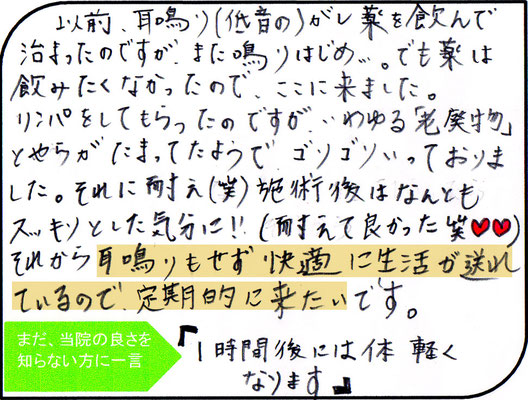 以前、耳鳴り(低音の)がし薬を飲んで
治まったのですが、また鳴りはじめ…。でも薬は
飲みたくなかったので、ここに来ました。
リンパをしてもらったのですが、いわゆる「老廃物」
とやらがたまってたようで、ゴリゴリいっておりま
した。それに耐え(笑)施術後はなんとも
スッキリとした気分に!!(耐えて良かった笑♥♥)
それから耳鳴りもせず快適に生活が送れ
ているので、定期的に来たいです。
まだ、当院の良さを
知らない方に一言
「1時間後には体 軽く
なります」